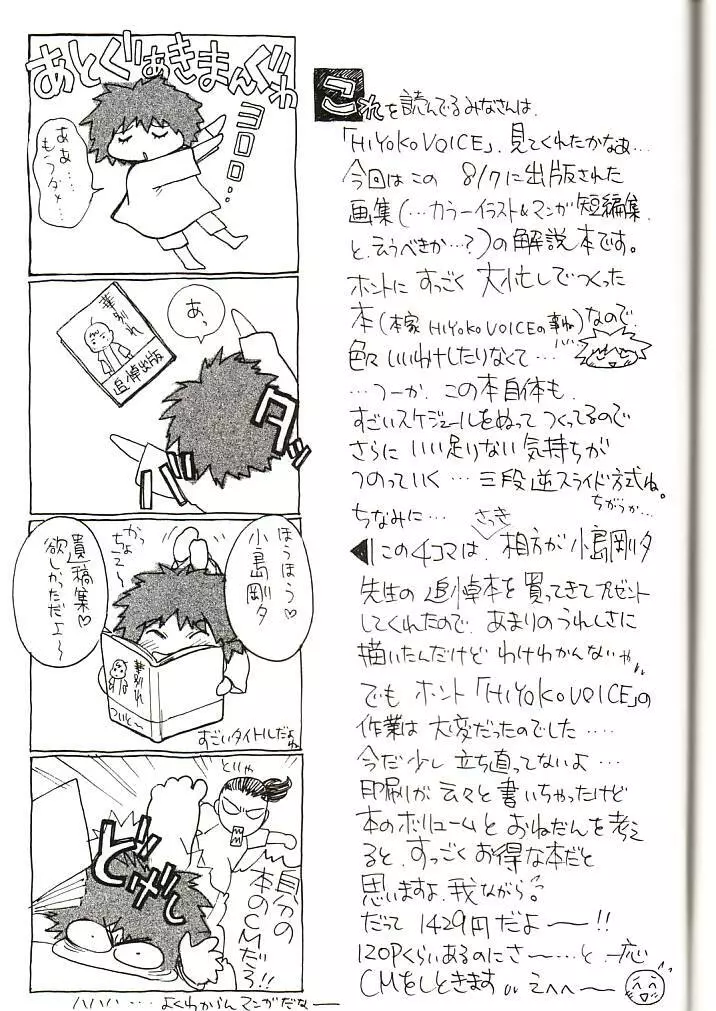 あとぐぁきまんぐわ
ヨロロ…
ああ…
もうダメ…
あっ
華別れ
追悼出版
バッ
タッ
ほうほう♡
小島剛夕
遺稿集♡
欲しかっただよ〜
かっちょえ〜
華別れ
ついと〜
すごいタイトルだよね
どいや
どげし
自分の
本のCMだろ!!
ハハハ… よくわからんマンガだなー
これを読んでるみなさんは、
「HIYOKO VOICE」、見てくれたかなぁ…
今回はこの 8/7に出版された
画集(…カラーイラスト&マンガ短編集、
と、云うべきか…?)の解説本です。
ホントに すっごく 大忙しでつくった
本(本家 HIYOKO VOICEの事ね)なので、
色々 いいわけしたりなくて…
…つーか、この本自体も、
すごいスケジュールをぬって つくってるので
さらに いい足りない 気持ちが
つのっていく… 三段逆スライド方式ね。
ちがうか…
ちなみに… さっき
◀この4コマは、相方が 小島剛夕
先生の 追悼本を買ってきてプレゼント
してくれたので、あまりのうれしさに
描いたんだけど わけわかんないや
でも ホント「HIYOKO VOICE」の
作業は 大変だったのでした…
今だ少し 立ち直ってないよ…
印刷が 云々と 書いちゃったけど
本のボリュームと おねだんを 考え
ると、すっごく お得な本だと
思いますよ、我ながら。
だって 1429円だよ――!!
120Pくらいあるのにさ〜…と、一応
CMをしときます えへへ〜